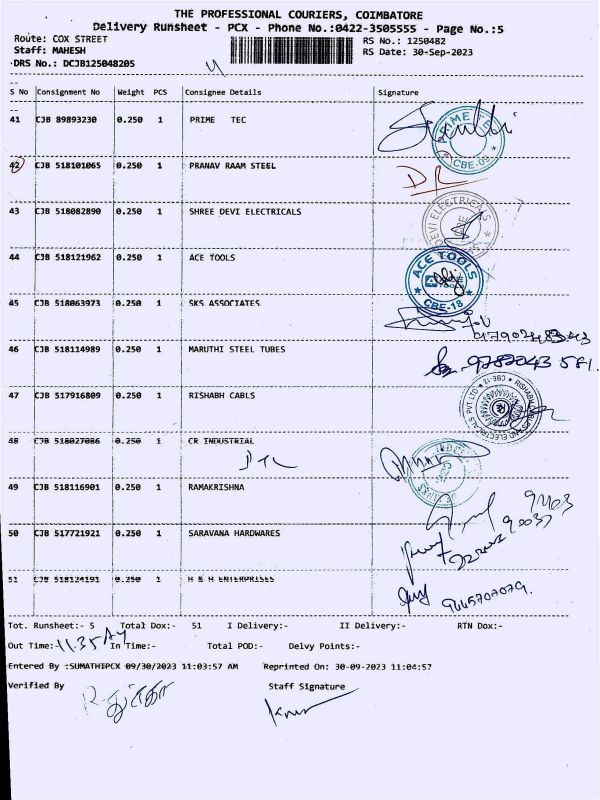 THE PROFESSIONAL COURIERS, COIMBATORE
Delivery Runsheet - PCX - Phone No.:0422-3505555 - Page No.:5
Route: COX STREET RS No.: 1250482
Staff: MAHESH RS Date: 30-Sep-2023
DRS No.: DCJB125048205
S No Consignment No Weight PCS Consignee Details Signature
41 CJB 89893230 0.250 1 PRIME TEC
CBE-09
42 CJB 518101065 0.250 1 PRANAV RAAM STEEL
43 CJB 518082890 0.250 1 SHREE DEVI ELECTRICALS
DEVI ELECTRICALS
44 CJB 518121962 0.250 1 ACE TOOLS
ACE TOOLS
CBE-18
45 CJB 518063973 0.250 1 SKS ASSOCIATES
46 CJB 518114989 0.250 1 MARUTHI STEEL TUBES
9787043 581
47 CJB 517916809 0.250 1 RISHABH CABLS
48 CJB 518027086 0.250 1 CR INDUSTRIAL
49 CJB 518116901 0.250 1 RAMAKRISHNA
50 CJB 517721921 0.250 1 SARAVANA HARDWARES
51 CJB 518124191 0.250 1 H & H ENTERPRISES
Tot. Runsheet:- 5 Total Dox:- 51 I Delivery:- II Delivery:- RTN Dox:-
Out Time:- 11.35 In Time:- Total POD:- Delvy Points:-
Entered By :SUMATHIPCX 09/30/2023 11:03:57 AM Reprinted On: 30-09-2023 11:04:57
Verified By Staff Signature